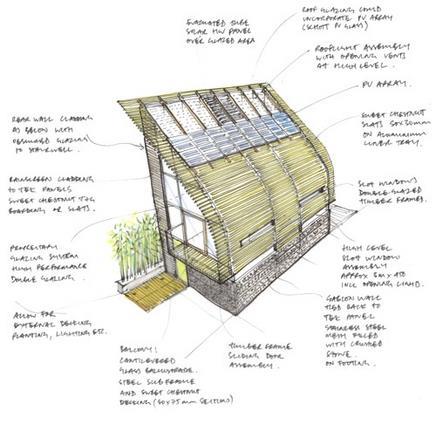 EVACUATED TUBE
SOLAR HW PANEL
OVER GLAZED AREA
ROOF GLAZING COULD
INCORPORATE PV ARRAY
(SCHOTT PV GLASS)
ROOFLIGHT ASSEMBLY
WITH OPENING VENTS
AT HIGH LEVEL.
PV ARRAY.
SWEET CHESTNUT
SLATS 50x30mm
ON ALUMINIUM
LINER TRAY.
SLOT WINDOWS
DOUBLE GLAZED
TIMBER FRAMES.
HIGH LEVEL
SLOT WINDOW
ASSEMBLY
APPROX 5m x 450
INCL OPENING LIGHT.
GABION WALL
TIED BACK TO
TEK PANEL
STAINLESS STEEL
MESH FILLED
WITH CRUSHED
STONE.
ON FOOTING.
REAR WALL CLADDING
AS BELOW WITH
OBSCURED GLAZING
TO STAIRWELL.
RAINSCREEN CLADDING
TO TEK PANELS
SWEET CHESTNUT T&G
BOARDING OR SLATS.
PROPRIETARY
GLAZING SYSTEM
HIGH PERFORMANCE
DOUBLE GLAZING.
ALLOW FOR
EXTERNAL DECKING,
PLANTING, LIGHTING ETC.
BALCONY:
CANTILEVERED
GLASS BALUSTRADE.
STEEL SUB FRAME
AND SWEET CHESTNUT
DECKING (50x75mm SECTIONS)
TIMBER FRAME
SLIDING DOOR
ASSEMBLY.